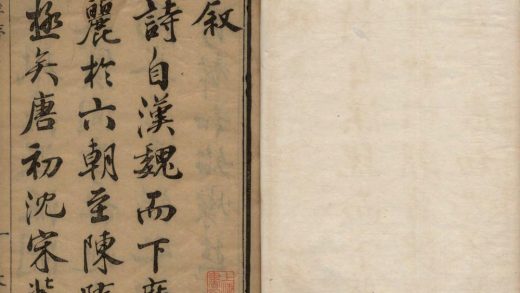 敘
詩自漢魏而下
麗於六朝至陳
極矣唐初沈宋